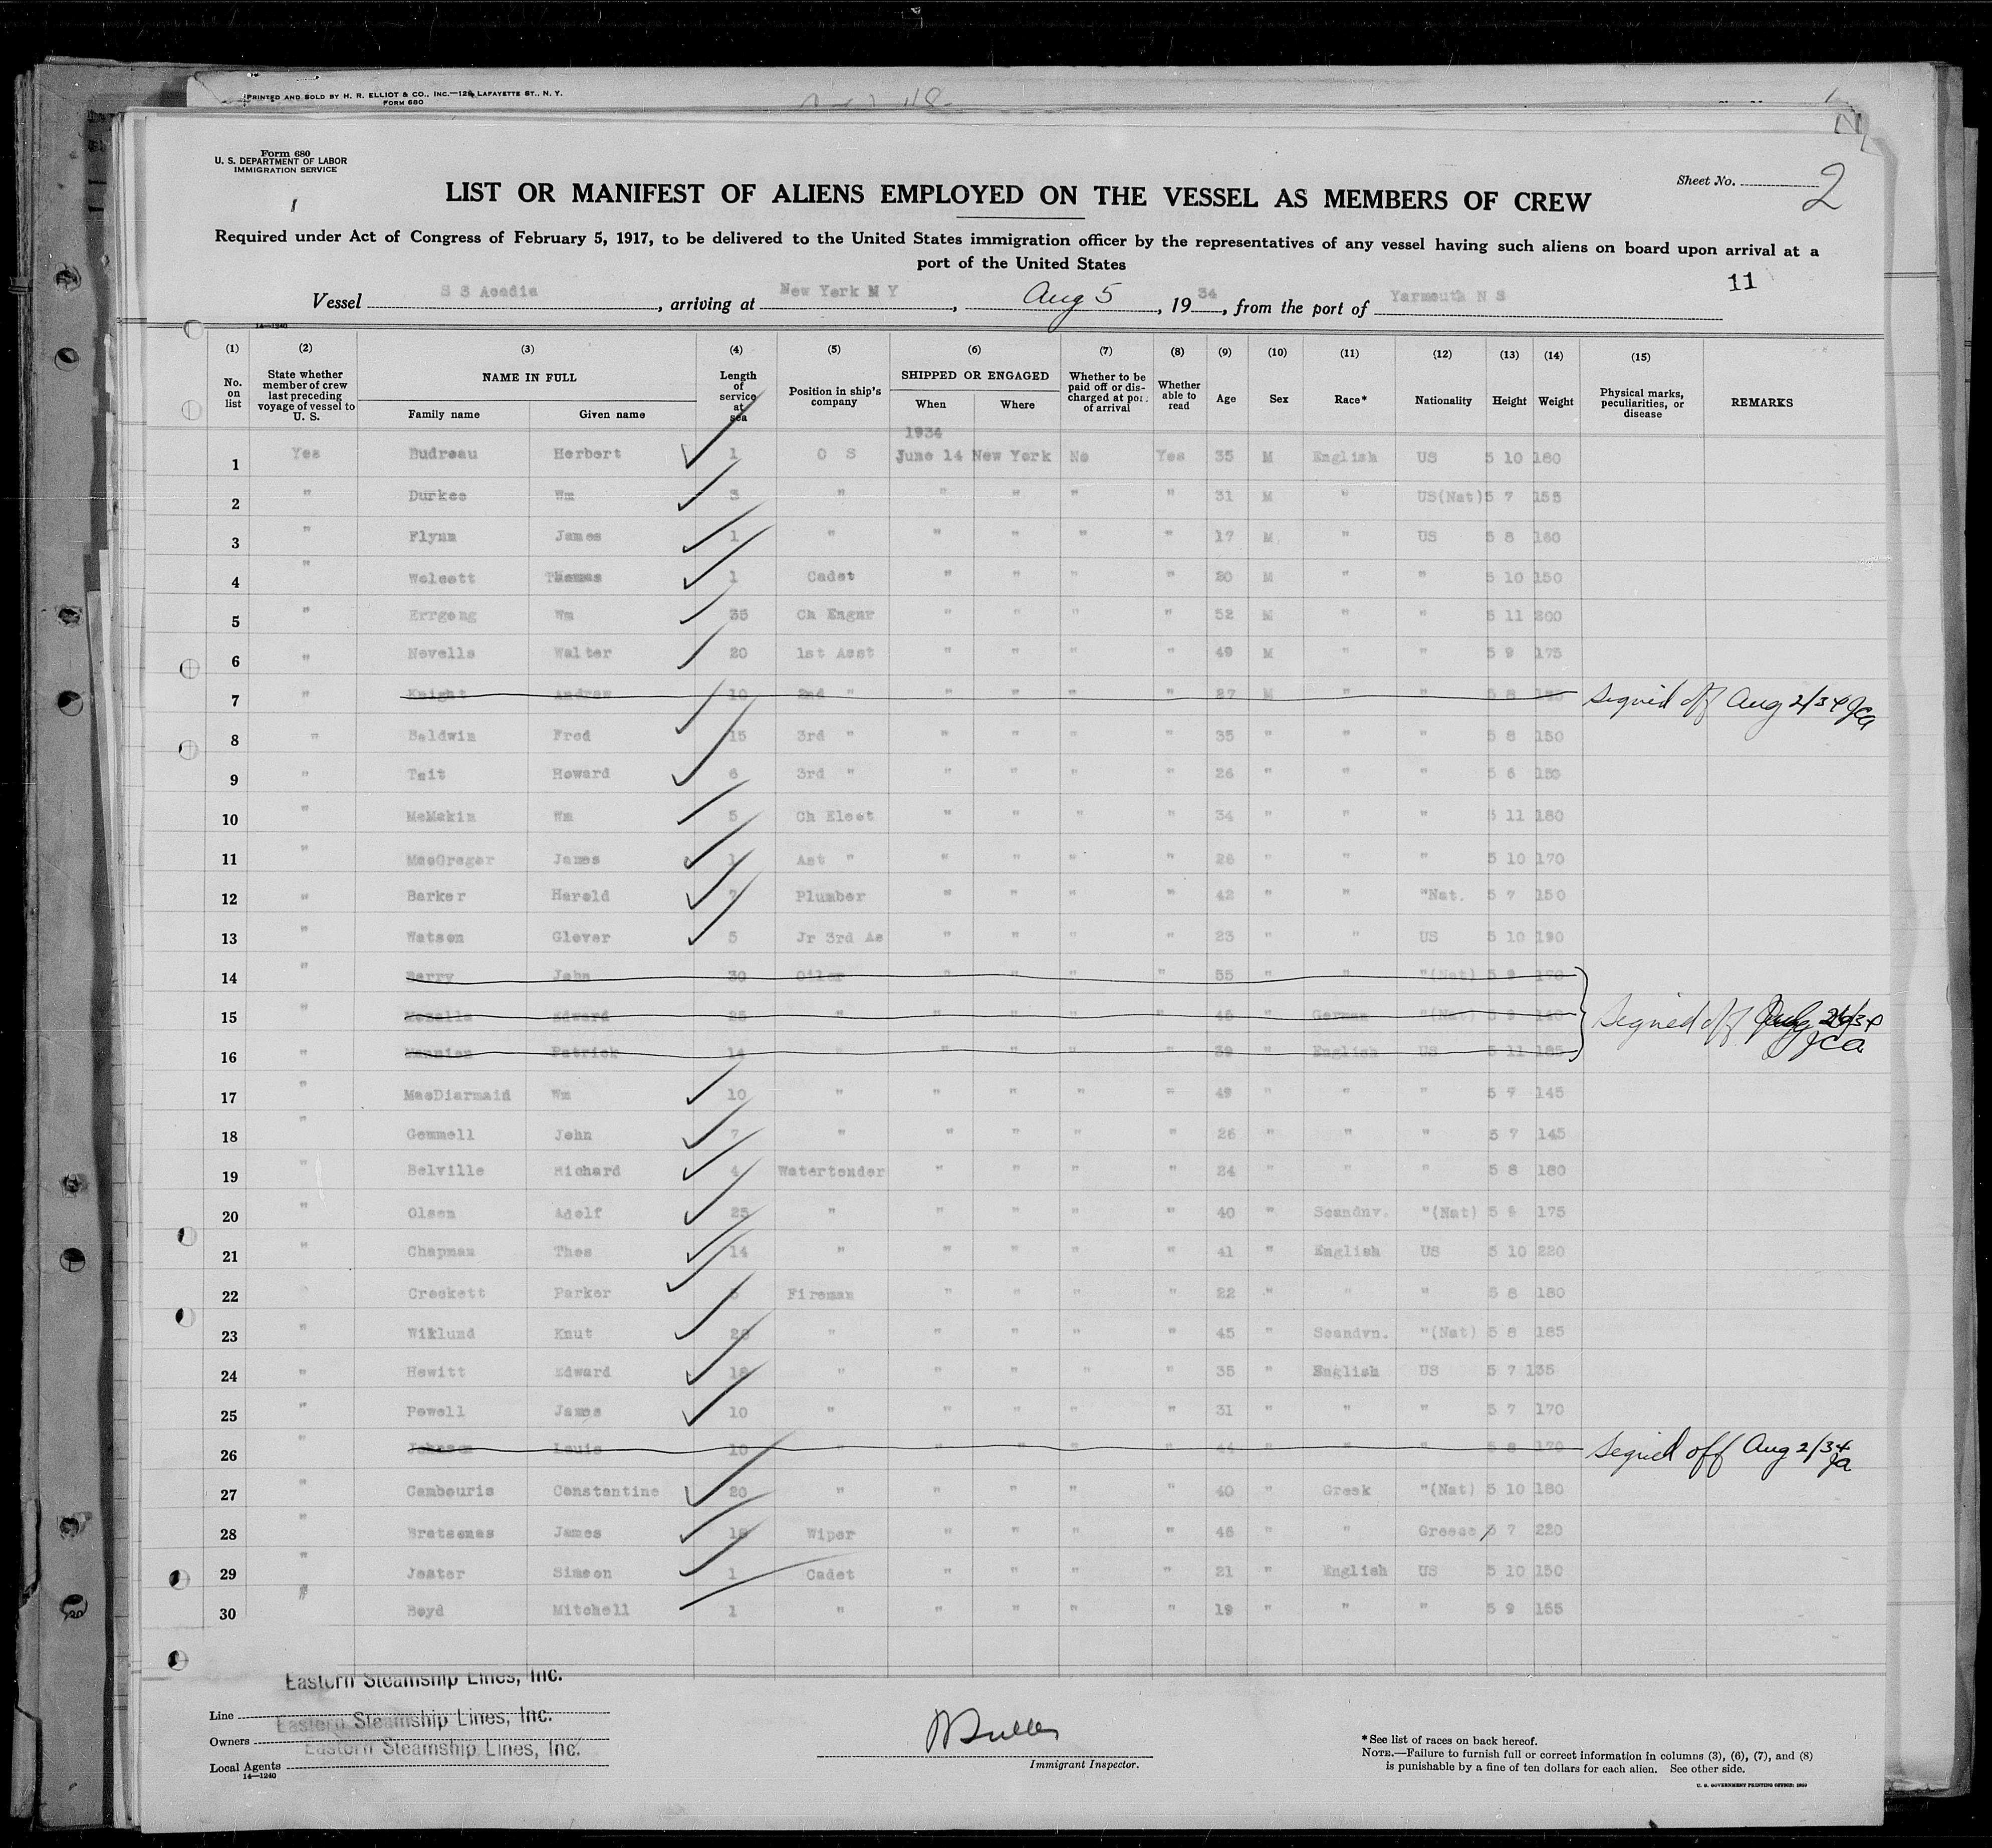 PRINTED AND SOLD BY H. R. ELLIOT & CO., INC.—128 LAFAYETTE ST., N. Y.
FORM 680
Form 680
U. S. DEPARTMENT OF LABOR
IMMIGRATION SERVICE
Sheet No. 2
LIST OR MANIFEST OF ALIENS EMPLOYED ON THE VESSEL AS MEMBERS OF CREW
Required under Act of Congress of February 5, 1917, to be delivered to the United States immigration officer by the representatives of any vessel having such aliens on board upon arrival at a
port of the United States
11
Vessel S S Acadia, arriving at New York N Y, Aug 5, 1934, from the port of Yarmouth N S
14—1240
(1) (2) (3) (4) (5) (6) (7) (8) (9) (10) (11) (12) (13) (14) (15)
No. on list
State whether member of crew last preceding voyage of vessel to U. S.
NAME IN FULL
Family name Given name
Length of service at sea
Position in ship's company
SHIPPED OR ENGAGED
When Where
Whether to be paid off or discharged at port of arrival
Whether able to read
Age Sex Race* Nationality Height Weight
Physical marks, peculiarities, or disease
REMARKS
1934
1 Yes Budreau Herbert 1 O S June 14 New York No Yes 35 M English US 5 10 160
2 " Durkee Wm 3 " " " " " 31 M " US(Nat) 5 7 155
3 " Flynn James 1 " " " " " 17 M " US 5 8 160
4 " Wolcott Thomas 1 Cadet " " " " 20 M " " 5 10 150
5 " Errgong Wm 35 Ch Engnr " " " " 52 M " " 5 11 200
6 " Nevells Walter 20 1st Asst " " " " 49 M " " 5 9 175
7 " Knight Andrew 10 2nd " " " " " 27 M " " 5 8 Signed off Aug 2/34 JCA
8 " Baldwin Fred 15 3rd " " " " " 35 " " " 5 8 150
9 " Tait Howard 6 3rd " " " " " 26 " " " 5 6 150
10 " McMakin Wm 5 Ch Elect " " " " 34 " " " 5 11 180
11 " MacGregor James 1 Ast " " " " " 26 " " " 5 10 170
12 " Barker Harold 7 Plumber " " " " 42 " " "Nat. 5 7 150
13 " Watson Glover 5 Jr 3rd As " " " " 23 " " US 5 10 190
14 " Berry John 30 Oiler " " " " 55 " " "(Nat) 5 9 170
15 " Edward 25 " " " " " 45 " German "(Nat) 5 Signed off Aug 2/34
16 " Patrick 14 " " " " " 39 " English US 5 11 185 JCA
17 " MacDiarmaid Wm 10 " " " " " 49 " " " 5 7 145
18 " Gemmell John 7 " " " " " 26 " " " 5 7 145
19 " Belville Richard 4 Watertender " " " " 24 " " " 5 8 180
20 " Olsen Adolf 25 " " " " " 40 " Scandnv. "(Nat) 5 175
21 " Chapman Thos 14 " " " " " 41 " English US 5 10 220
22 Crockett Parker Fireman " " " " 22 " " " 5 8 180
23 " Wiklund Knut 28 " " " " " 45 " Scandvn. "(Nat) 5 8 185
24 " Hewitt Edward 18 " " " " " 35 " English US 5 7 135
25 " Powell James 10 " " " " " 31 " " " 5 7 170
26 " Johnson Louis 10 " " " " " 44 " " " 5 8 170 Signed off Aug 2/34 JA
27 " Cambouris Constantine 20 " " " " " 40 " Greek "(Nat) 5 10 180
28 " Bratsenas James Wiper " " " " 46 " " Greece 5 7 220
29 " Jester Simeon 1 Cadet " " " " 21 " English US 5 10 150
30 " Boyd Mitchell 1 " " " " " 19 " " " 5 9 155
Eastern Steamship Lines, Inc.
Line Eastern Steamship Lines, Inc.
Owners Eastern Steamship Lines, Inc.
Local Agents
14—1240
Immigrant Inspector.
*See list of races on back hereof.
NOTE.—Failure to furnish full or correct information in columns (3), (6), (7), and (8)
is punishable by a fine of ten dollars for each alien. See other side.
U. S. GOVERNMENT PRINTING OFFICE: 1930